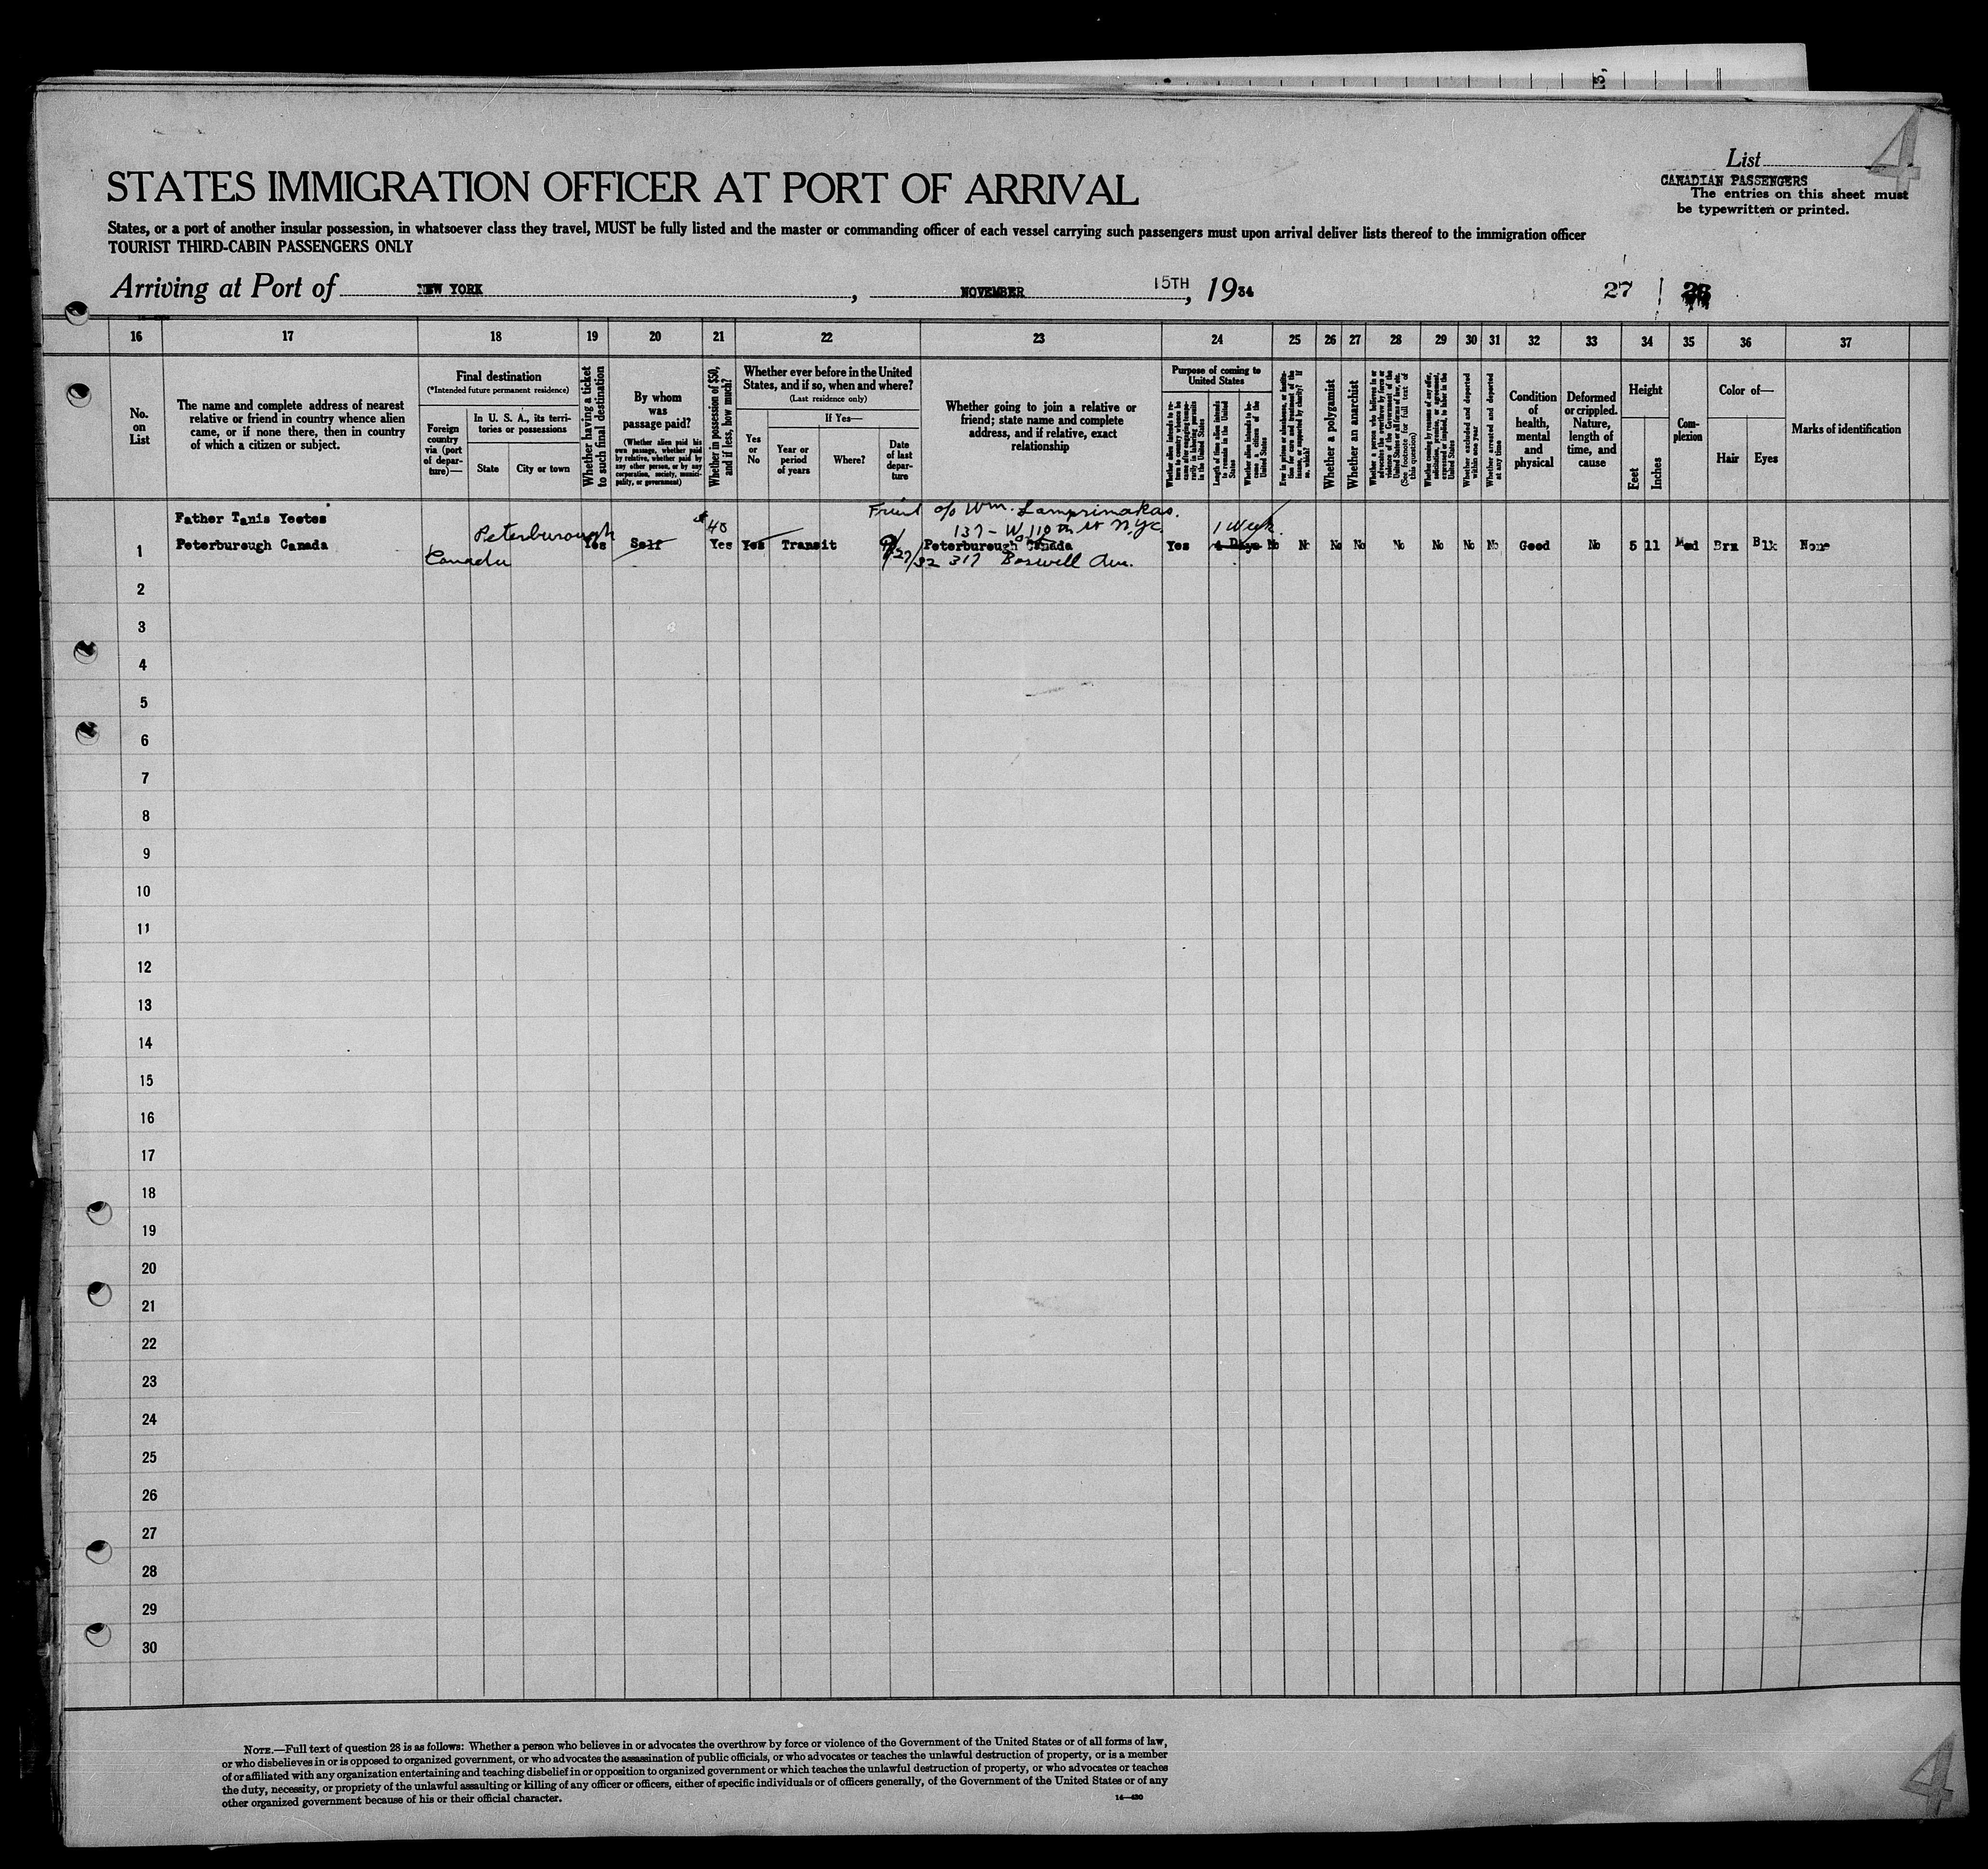 List 4
STATES IMMIGRATION OFFICER AT PORT OF ARRIVAL
CANADIAN PASSENGERS
The entries on this sheet must
be typewritten or printed.
States, or a port of another insular possession, in whatsoever class they travel, MUST be fully listed and the master or commanding officer of each vessel carrying such passengers must upon arrival deliver lists thereof to the immigration officer
TOURIST THIRD-CABIN PASSENGERS ONLY
Arriving at Port of NEW YORK, NOVEMBER 15TH, 1934
27
16 17 18 19 20 21 22 23 24 25 26 27 28 29 30 31 32 33 34 35 36 37
No. on List
The name and complete address of nearest
relative or friend in country whence alien
came, or if none there, then in country
of which a citizen or subject.
Final destination
(*Intended future permanent residence)
Foreign country via (port of departure)—
In U. S. A., its territories or possessions
State
City or town
Whether having a ticket to such final destination
By whom was passage paid?
(Whether alien paid his own passage, whether paid by relative, whether paid by any other person, or by any corporation, society, municipality, or government)
Whether in possession of $50, and if less, how much?
Whether ever before in the United States, and if so, when and where?
(Last residence only)
Yes or No
If Yes—
Year or period of years
Where?
Date of last departure
Whether going to join a relative or
friend; state name and complete
address, and if relative, exact
relationship
Purpose of coming to United States
Whether alien intends to return to country whence he came after engaging temporarily in laboring pursuits in the United States
Length of time alien intends to remain in the United States
Whether alien intends to become a citizen of the United States
Ever in prison or almshouse, or institution for care and treatment of the insane, or supported by charity? If so, which?
Whether a polygamist
Whether an anarchist
Whether a person who believes in or advocates the overthrow by force or violence of the Government of the United States or all forms of law, etc. (See footnote for full text of this question)
Whether coming by reason of any offer, solicitation, promise, or agreement, expressed or implied, to labor in the United States
Whether excluded and deported within one year
Whether arrested and deported at any time
Condition of health, mental and physical
Deformed or crippled. Nature, length of time, and cause
Height
Feet
Inches
Complexion
Color of—
Hair
Eyes
Marks of identification
Friend c/o Wm. Lamprinakos.
Father Tanis Yeotes
Peterborough
$40
137 - W 110th St N.Y.C.
1 Week
1 Peterburough Canada Yes Self Yes Yes Transit Peterburough Canada Yes 4 Days No No No No No No No No Good No 5 11 Med Brn Blk None
Canada
9/27/32 317 Boswell Ave.
2
3
4
5
6
7
8
9
10
11
12
13
14
15
16
17
18
19
20
21
22
23
24
25
26
27
28
29
30
NOTE.—Full text of question 28 is as follows: Whether a person who believes in or advocates the overthrow by force or violence of the Government of the United States or of all forms of law,
or who disbelieves in or is opposed to organized government, or who advocates the assassination of public officials, or who advocates or teaches the unlawful destruction of property, or is a member
of or affiliated with any organization entertaining and teaching disbelief in or opposition to organized government or which teaches the unlawful destruction of property, or who advocates or teaches
the duty, necessity, or propriety of the unlawful assaulting or killing of any officer or officers, either of specific individuals or of officers generally, of the Government of the United States or of any
other organized government because of his or their official character.
14—430
4